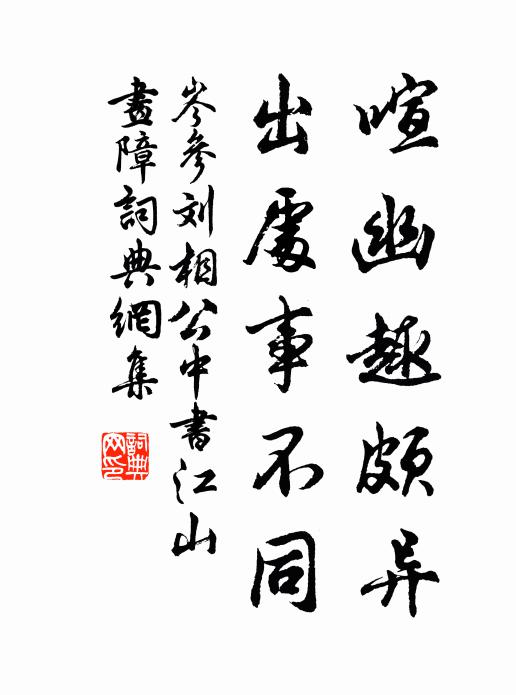 喧幽趣颇异
出處事不同
岑參刘相公中書江山
畫障詞典網集
詞典网印